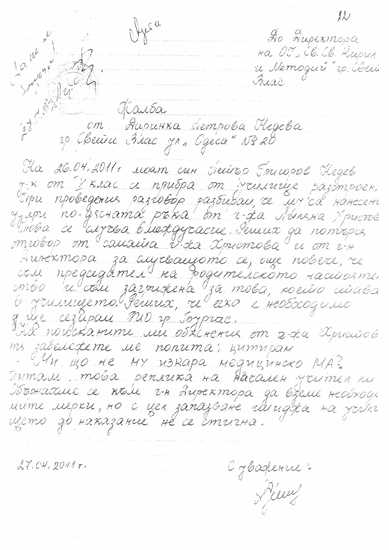 12
До Директора
на ОУ „Св. Св. Кирил
и Методий" гр. Свети
Влас
Жалба
от Маринка Петрова Недева
гр. Свети Влас ул. „Одеса" № 20
На 26.04.2011 г моят син Григоров Недев
у-к от клас се прибра от училище разтроен.
При проведения разговор разбирам, че му са нанесени
удари по дясната ръка от г-жа Христова
Това се случва в междучасие. Реших да потърся
отговор от самата г-жа Христова и от г-н
Директора за случващото се, още повече, че
съм председател на Родителското настоятел
ство и съм загрижена за това, което става
в училището. Реших, че ако е необходимо
ще сезирам РИО гр. Бургас.
поисканите ми обяснения от г-жа Христова
тя ме попита: цитирам
- Ми що не му извара медицинско МА?
Питам, това реплика на класен учител ли
Обжалвам се към г-н Директора да вземе необходи
мите мерки, но с цел запазване имиджа на учили
щето до наказание не се стигна.
27.04.2011 г.
С уважение: